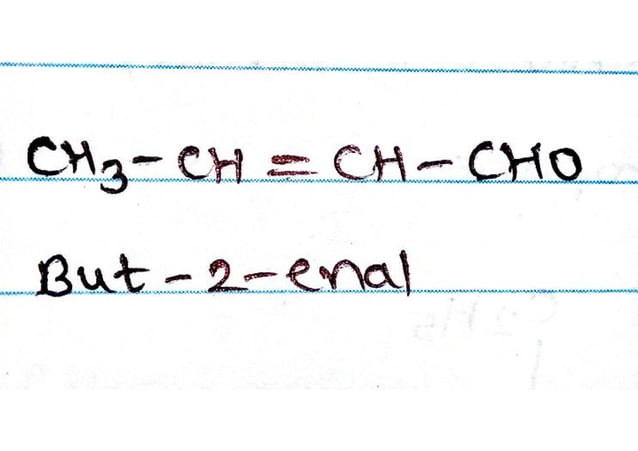 CH3-CH=CH-CHO
But-2-enal